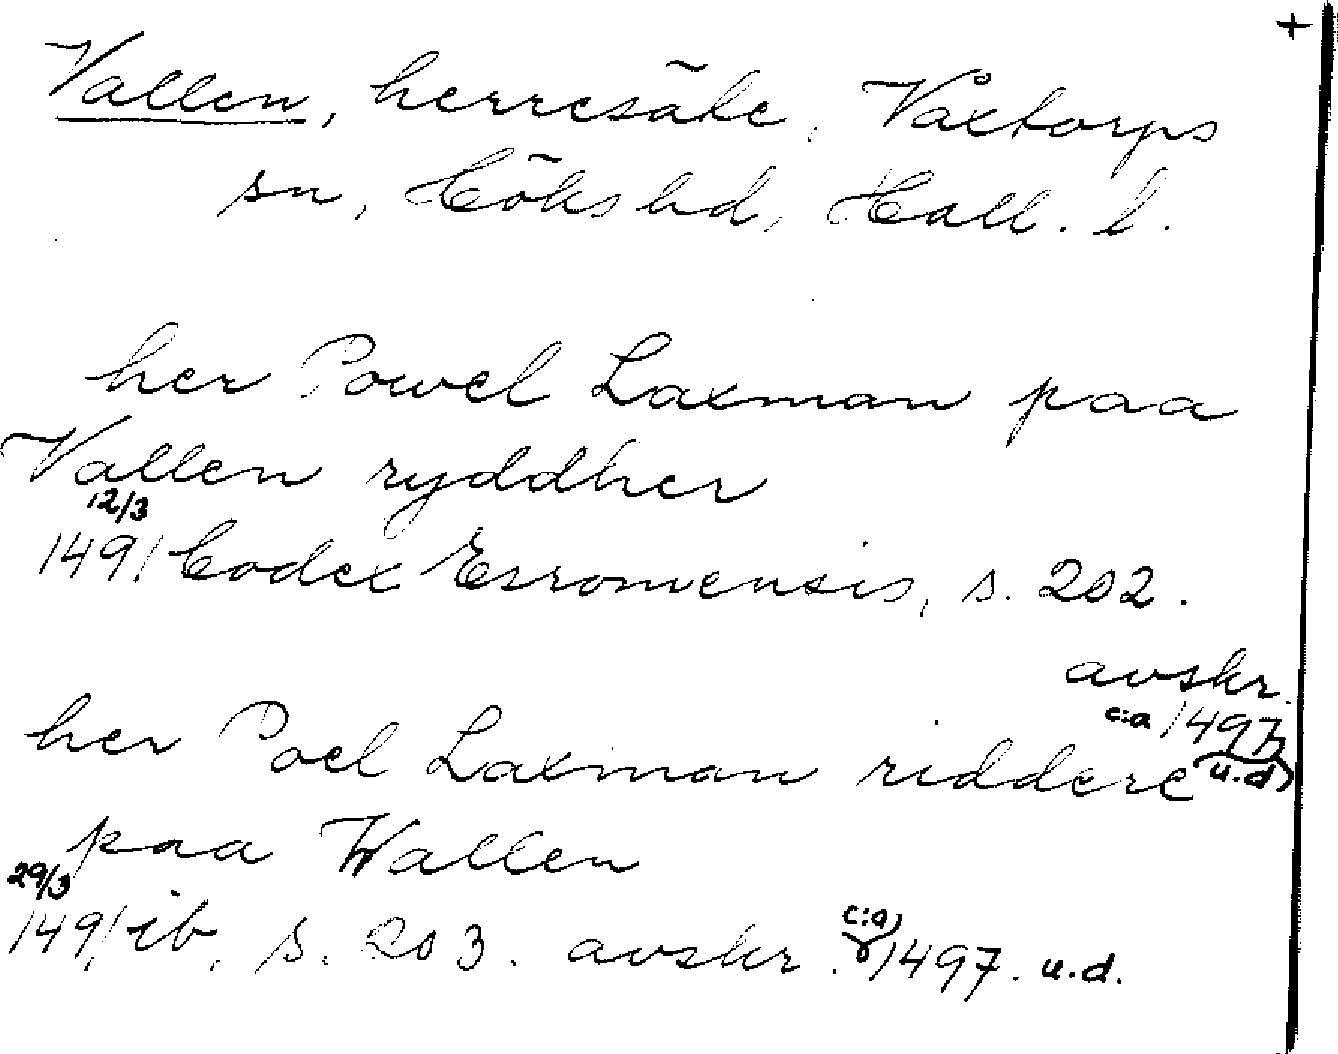 +
Vallen, herresäte, Vaxtorps
sn, Höks hd, Hall. l.
her Powel Laxman paa
Vallen ryddher
12/3
1491 Codex Esromensis, s. 202.
avskr.
c:a 1497
u.d.
her Poel Laxman riddere
paa Wallen
29/3
1491 ib, s. 203. avskr. c:a 1497. u.d.